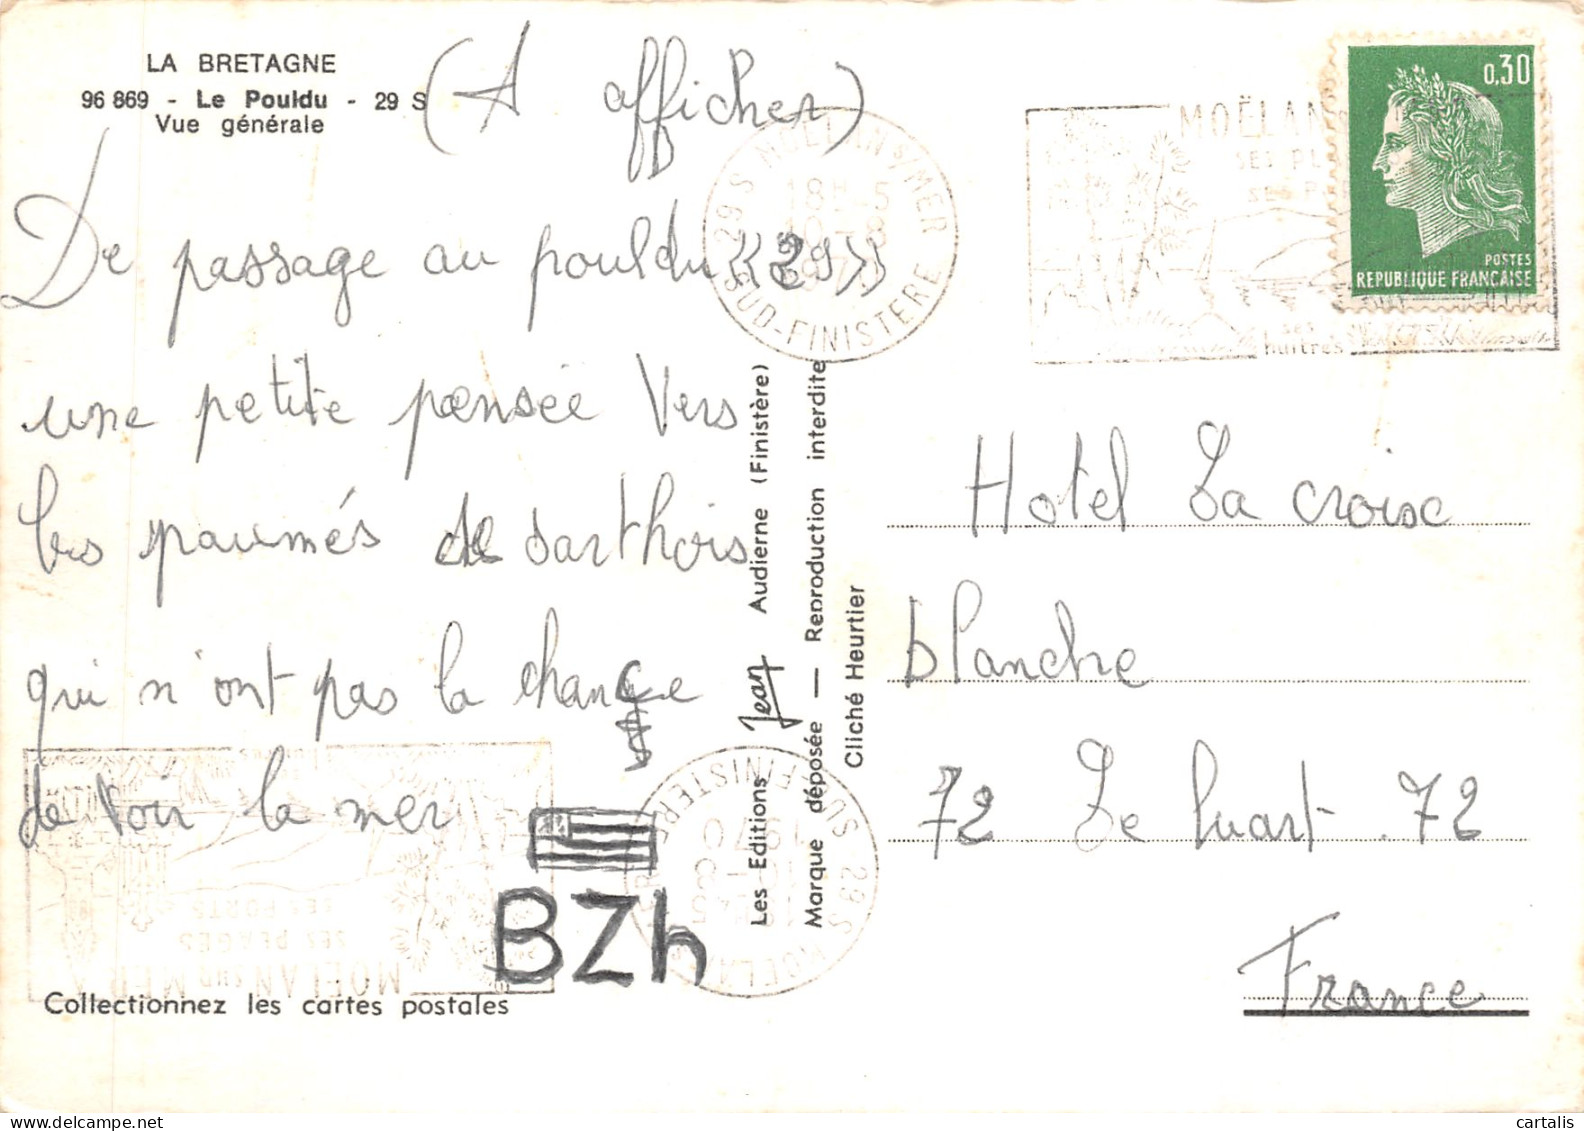 LA BRETAGNE
96 869 - Le Pouldu - 29 S
Vue générale
(A afficher)
De passage au pouldu «29»
une petite pensée Vers
les paumés de sarthois
qui n'ont pas la chance
de voir la mer
BZh
Collectionnez les cartes postales
Les Editions Jean Audierne (Finistère)
Marque déposée — Reproduction interdite
Cliché Heurtier
MOËLAN S/MER
18H-5
10-8
29 S SUD-FINISTERE
MOËLAN
huîtres
0,30
POSTES
REPUBLIQUE FRANÇAISE
Hotel La croix
blanche
72 Le luart. 72
France
MOËLAN sur MER
SES PLAGES
SES PORTS
29 S SUD FINISTERE
1970
cartalis